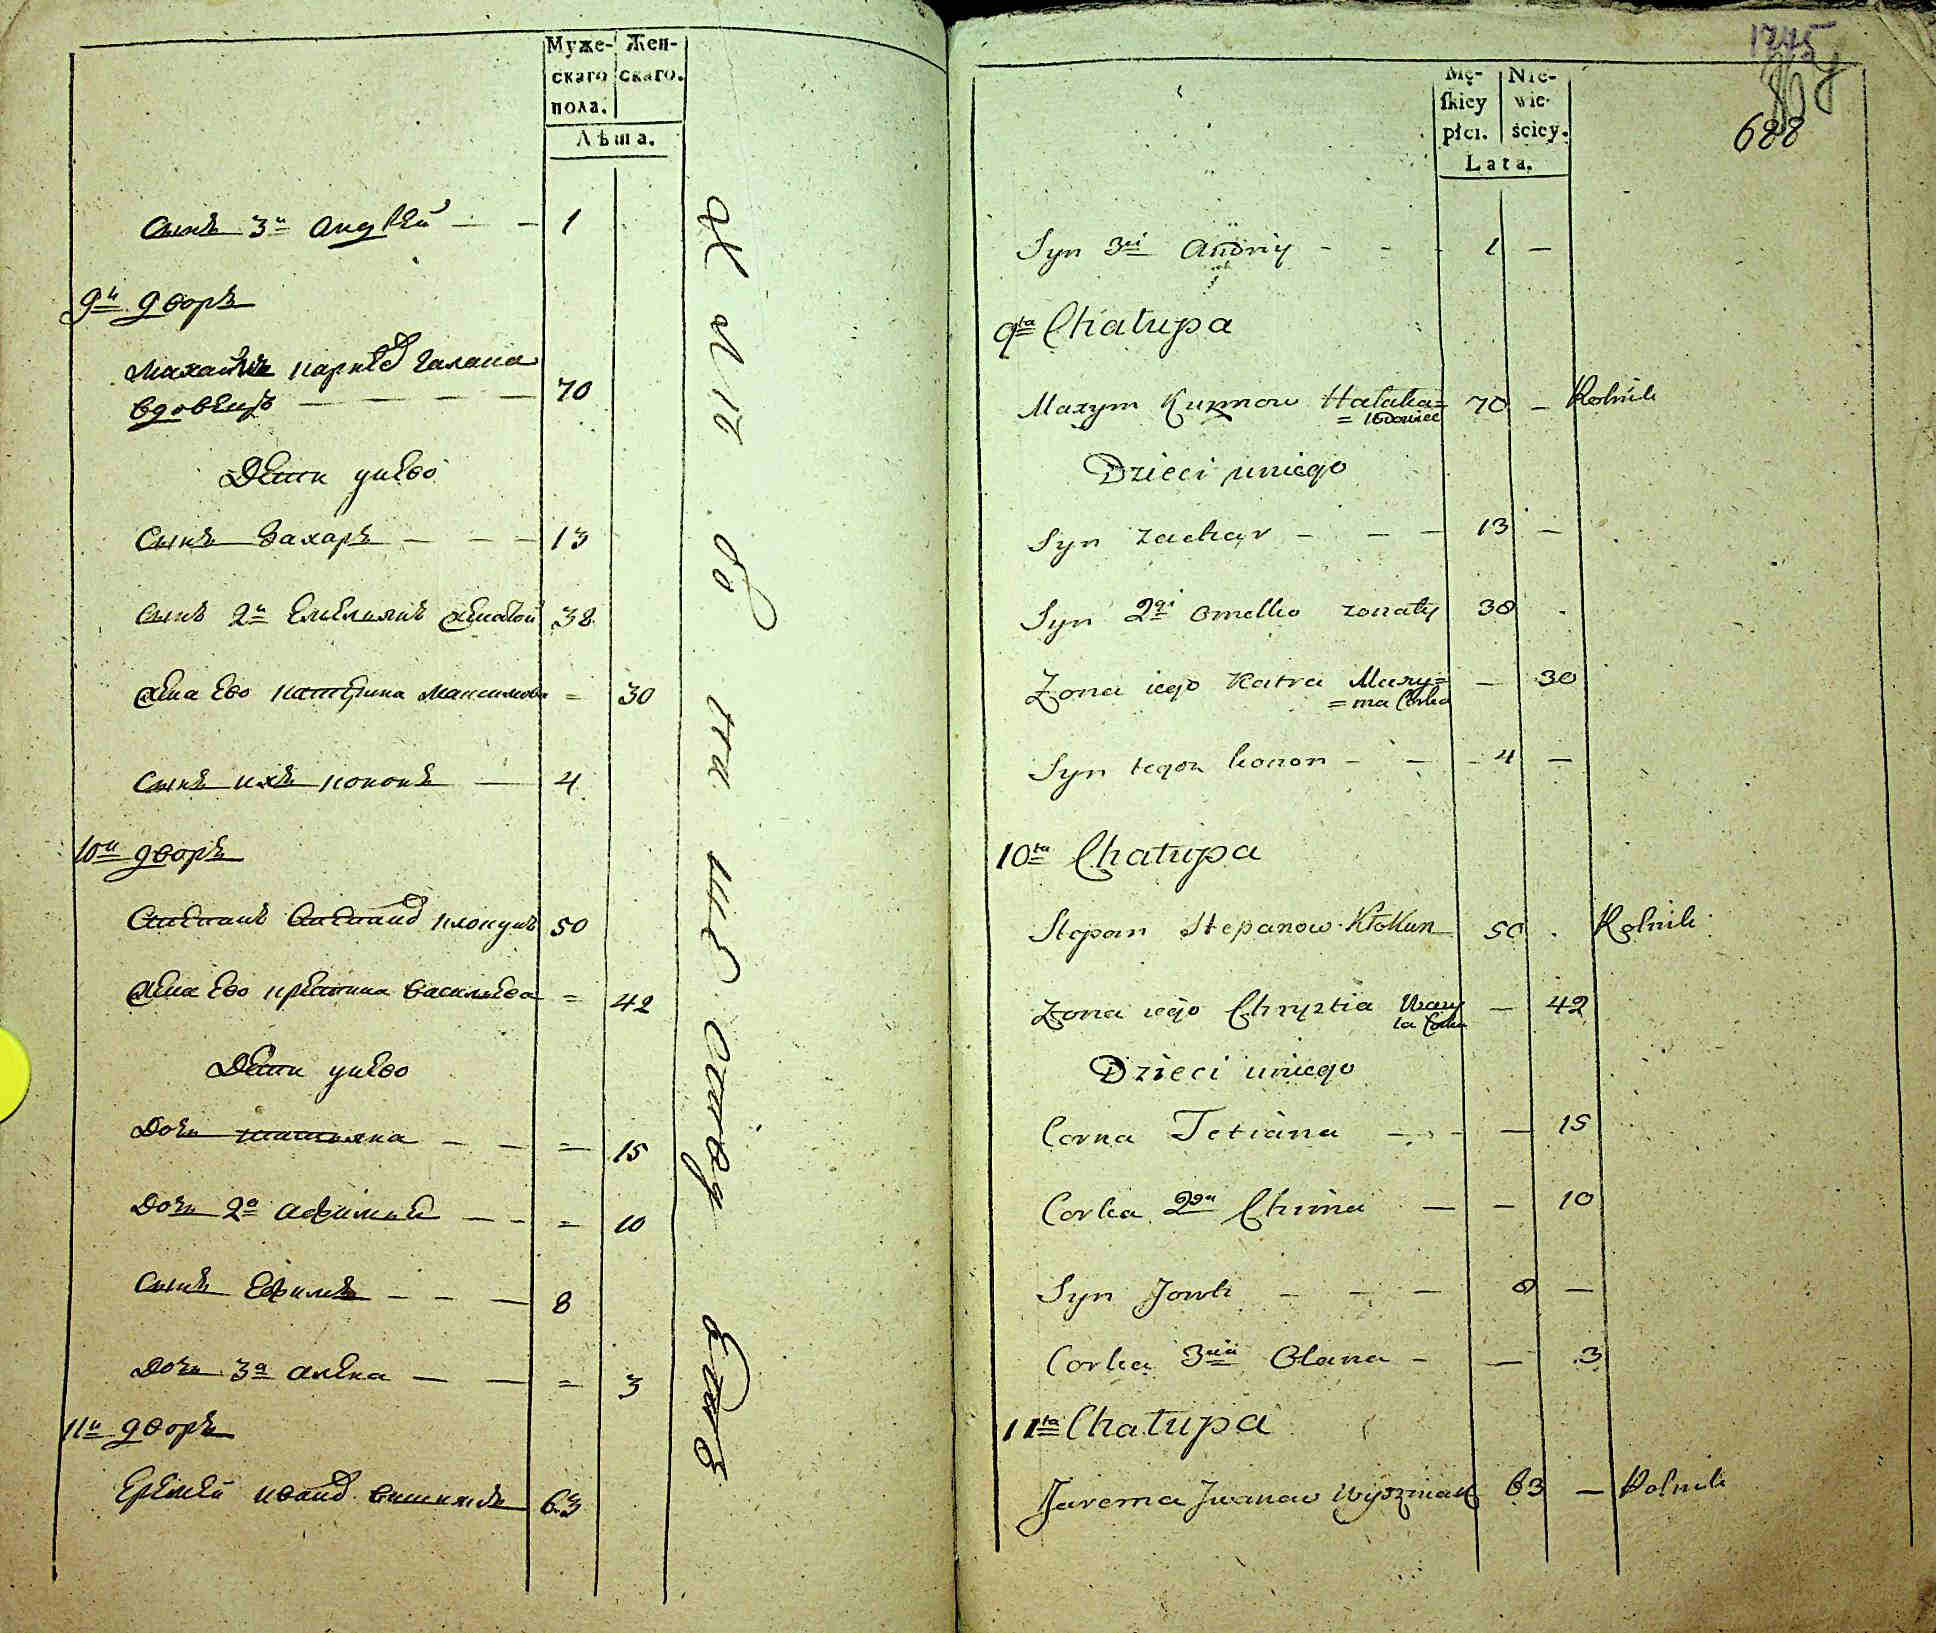 Муже-
скаго
пола.
Жен-
скаго.
Лѣта.
Сынъ 3й Андрей — — 1
9й дворъ
вдовецъ — — — — 70
Дѣти у нево
Сынъ Захаръ — — — 13
Сынъ 2й Емельянъ женатой 38
Жена ево Катерина Максимова = 30
Сынъ ихъ Кононъ — 4
10й дворъ
Степанъ Степановъ Клокунъ 50
Жена ево Кристина Васильева = 42
Дѣти у нево
Дочь Татьяна — — = 15
Дочь 2я Афимия — — = 10
Сынъ Ефимъ — — — 8
Дочь 3я Алена — — = 3
11й дворъ
Еремей Ивановъ Вишнякъ 63
Mę-
skiey
płci.
Nie-
wie-
ściey.
Lata.
1745
688
Syn 3ci Andriy - - - 1 —
9ta Chałupa
Maxym Hałaka= 70 — Rolnik
= Wdowiec
Dzieci u niego
Syn Zachar — — — 13 —
Syn 2gi Omelko zonaty 38 -
Zona iego Katra Maxy= — 30
= ma Corka
Syn tegoz Konon - - - 4 —
10ta Chałupa
Stepan Stepanow Kłokun 50 . Rolnik
Zona iego Chrystia Wasy — 42
la Corka
Dzieci u niego
Corka Tetiana — - - — 15
Corka 2ga Chima — — 10
Syn Jowk — — — 8 —
Corka 3cia Olana - — 3
11ta Chałupa
Jarema Jwanow Wyszniak 63 — Rolnik